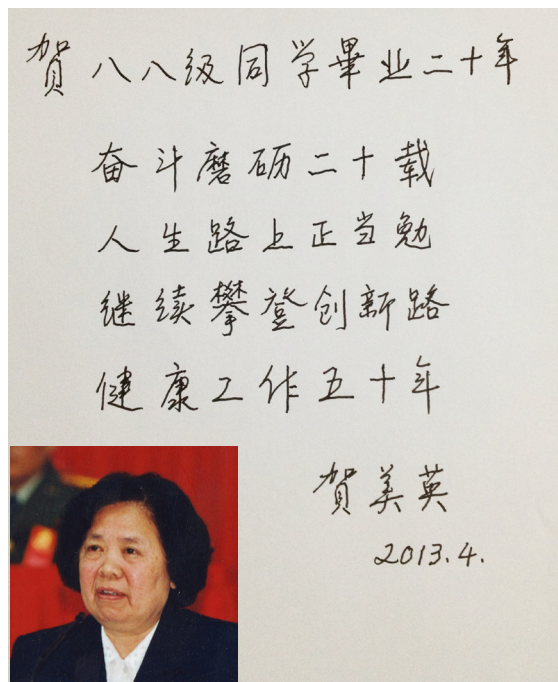 賀八八级同学畢业二十年
奋斗磨砺二十载
人生路上正当勉
继续攀登创新路
健康工作五十年
賀美英
2013.4.